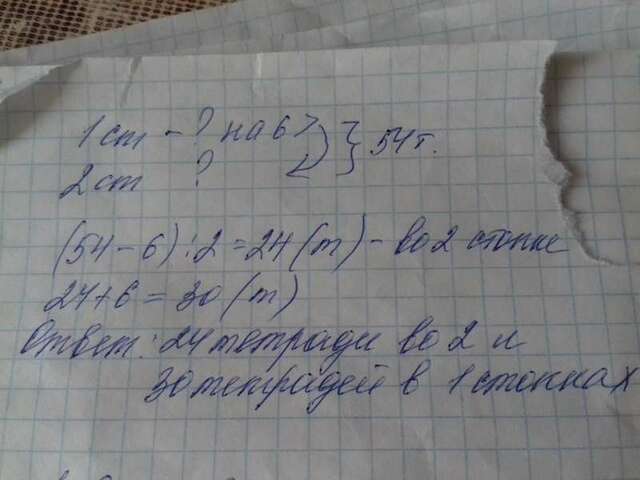 1 ст - ? на 6 > } 54 т.
2 ст ?
(54 - 6) : 2 = 24 (т) - во 2 стопке
24 + 6 = 30 (т)
Ответ: 24 тетради во 2 и
30 тетрадей в 1 стопках